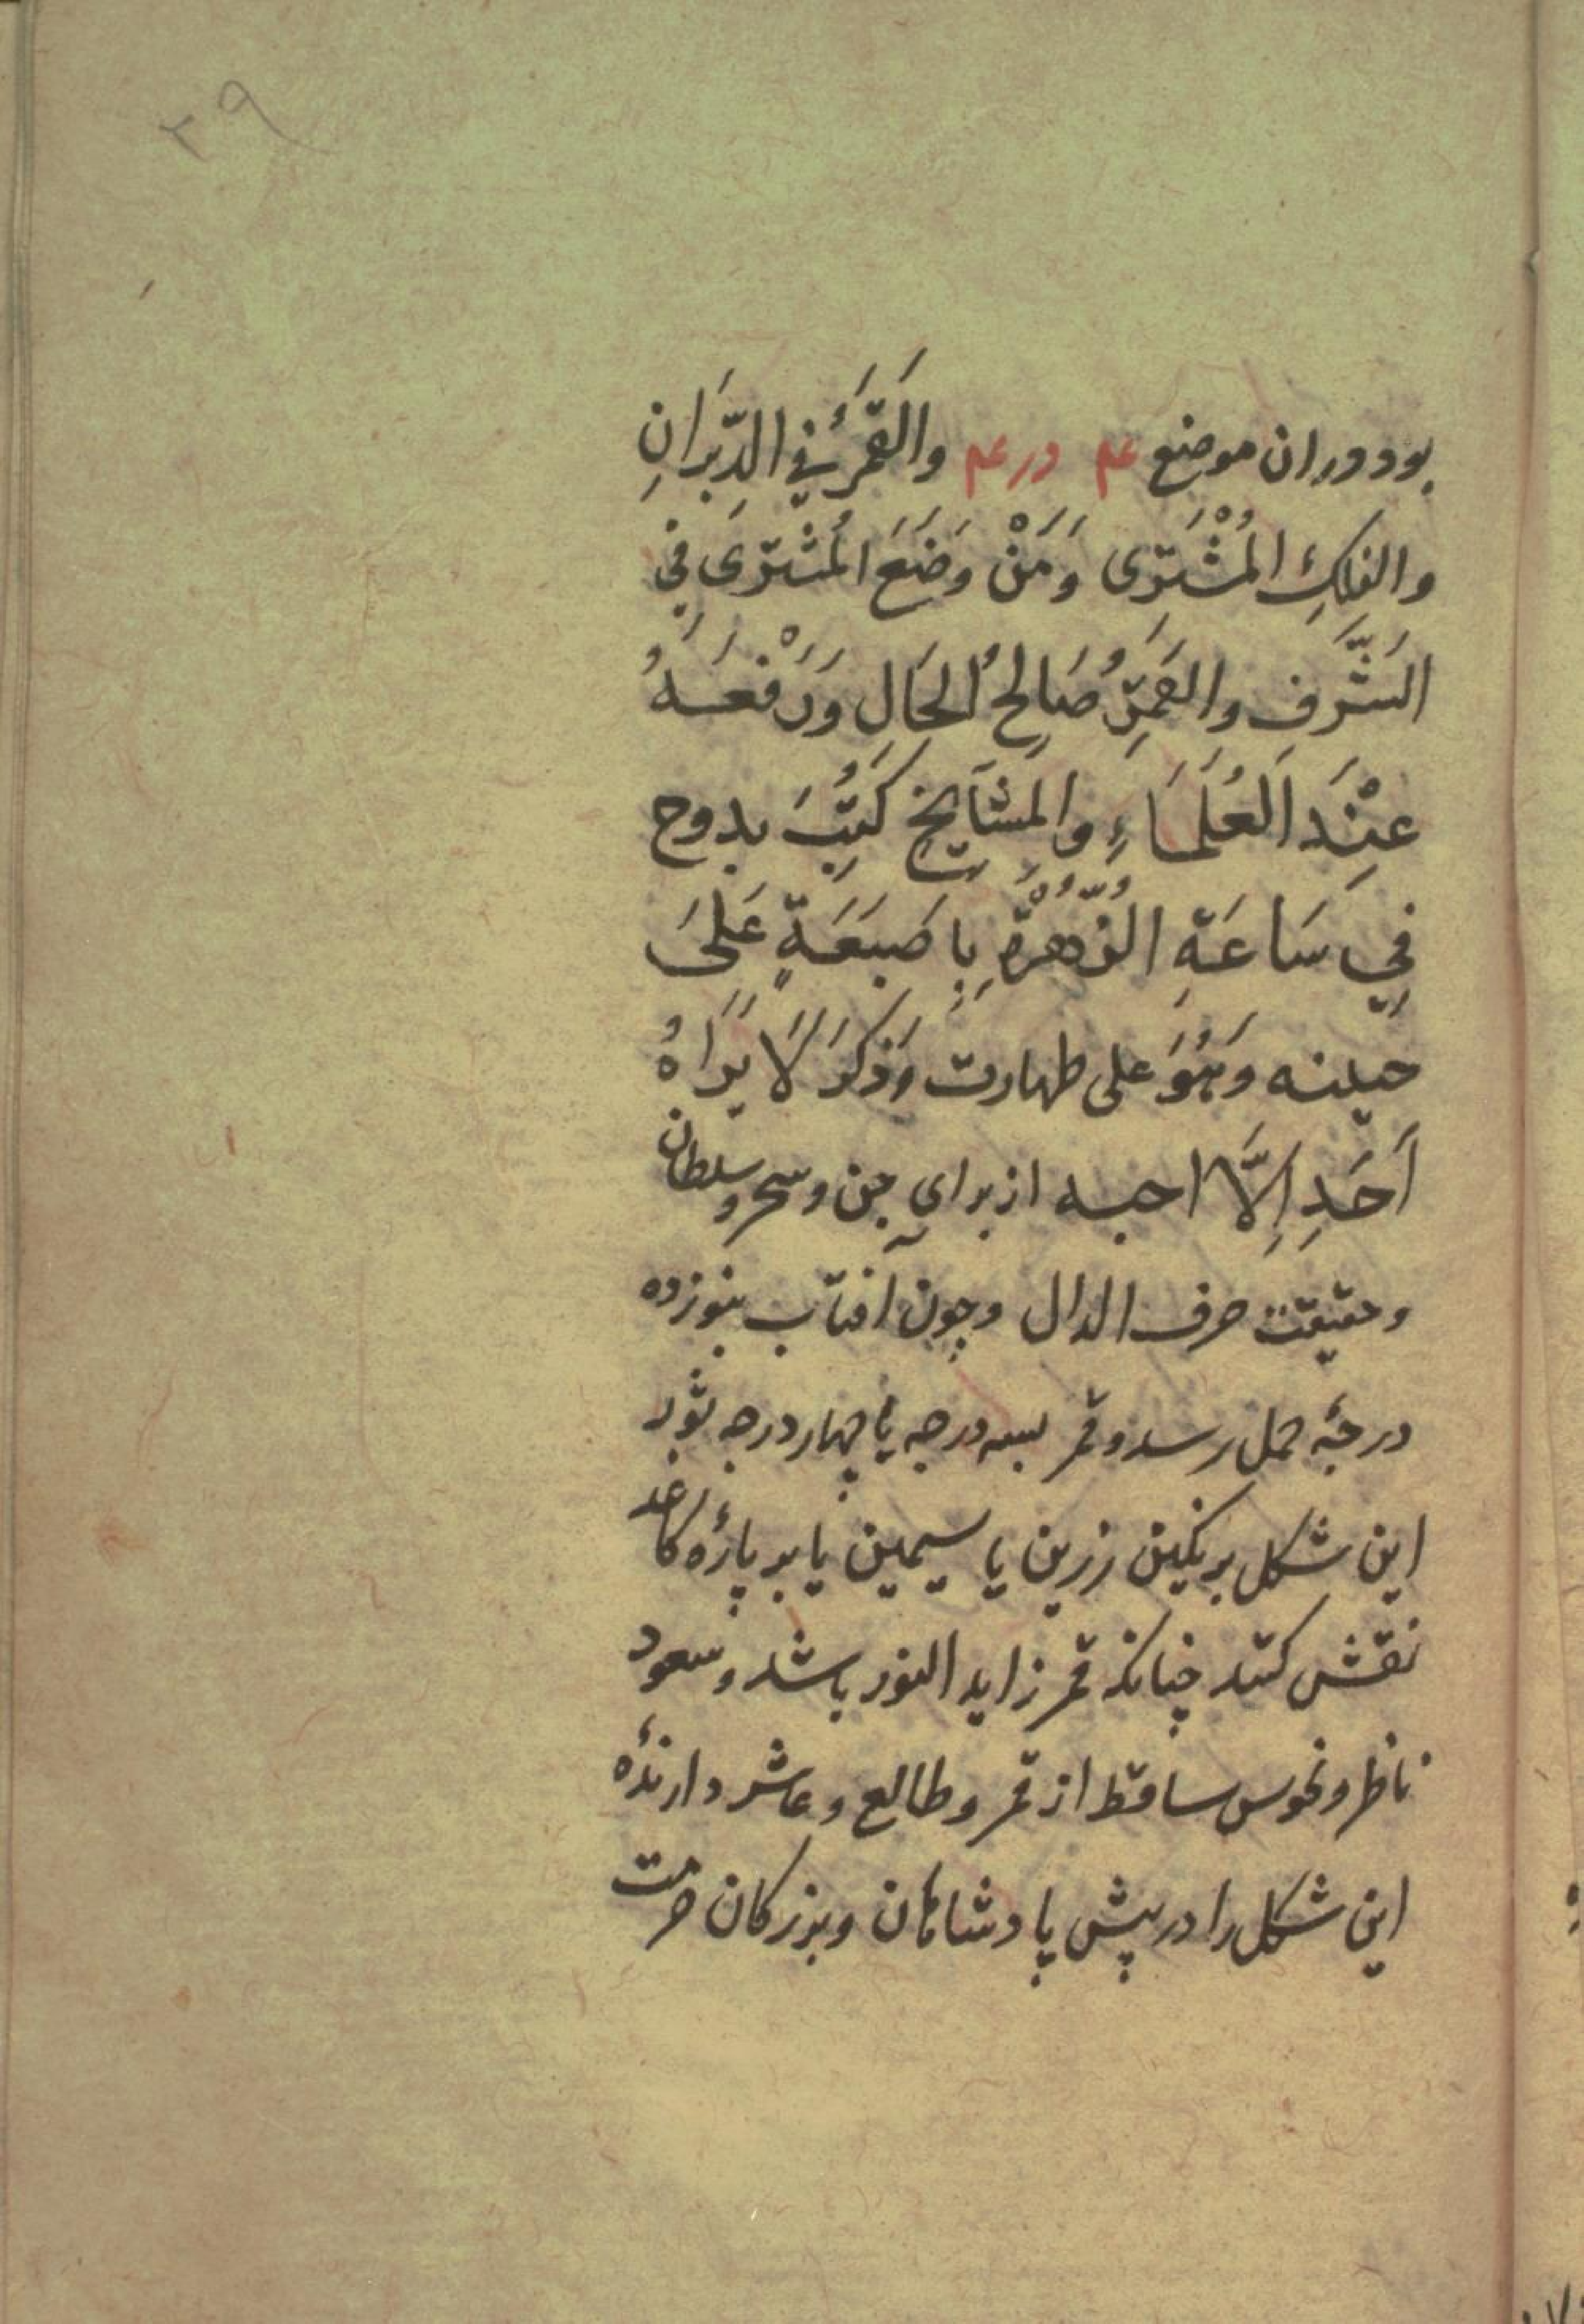 ۲۹
بود دران موضع عم در عم والقَمَرُ فِي الدَّبَرَانِ
والفَلَكِ المُشْتَرِى وَمَنْ وَضَعَ المُشْتَرَى فِي
الشَّرَفِ والقَمَرِ صَالِحُ الحَالِ وَرَفْعَهُ
عِنْدَ العُلَمَاءِ والمَشَايِخِ كَتَبَ بدوح
فِي سَاعَةِ الزُّهْرَةِ بِاصَبَعَةٍ عَلَى
حينه وَهُوَ على طهارت وَذَكَرَ لَا يَرَاهُ
أَحَدِ اِلَّا احبه از برای جن و سحر و سلطان
و حقیقت حرف الدال و چون آفتاب بنوزده
درجهٔ حمل رسد و قمر بسه درجه یا چهار درجه ثور
این شکل بر نکین زرین یا سیمین یا بر پارهٔ کاغد
نقش کنند چنانکه قمر زاید النور باشد و سعود
ناظر و نحوس ساقط از قمر و طالع و عاشر دارندهٔ
این شکل را در پیش پادشاهان و بزرکان حرمت